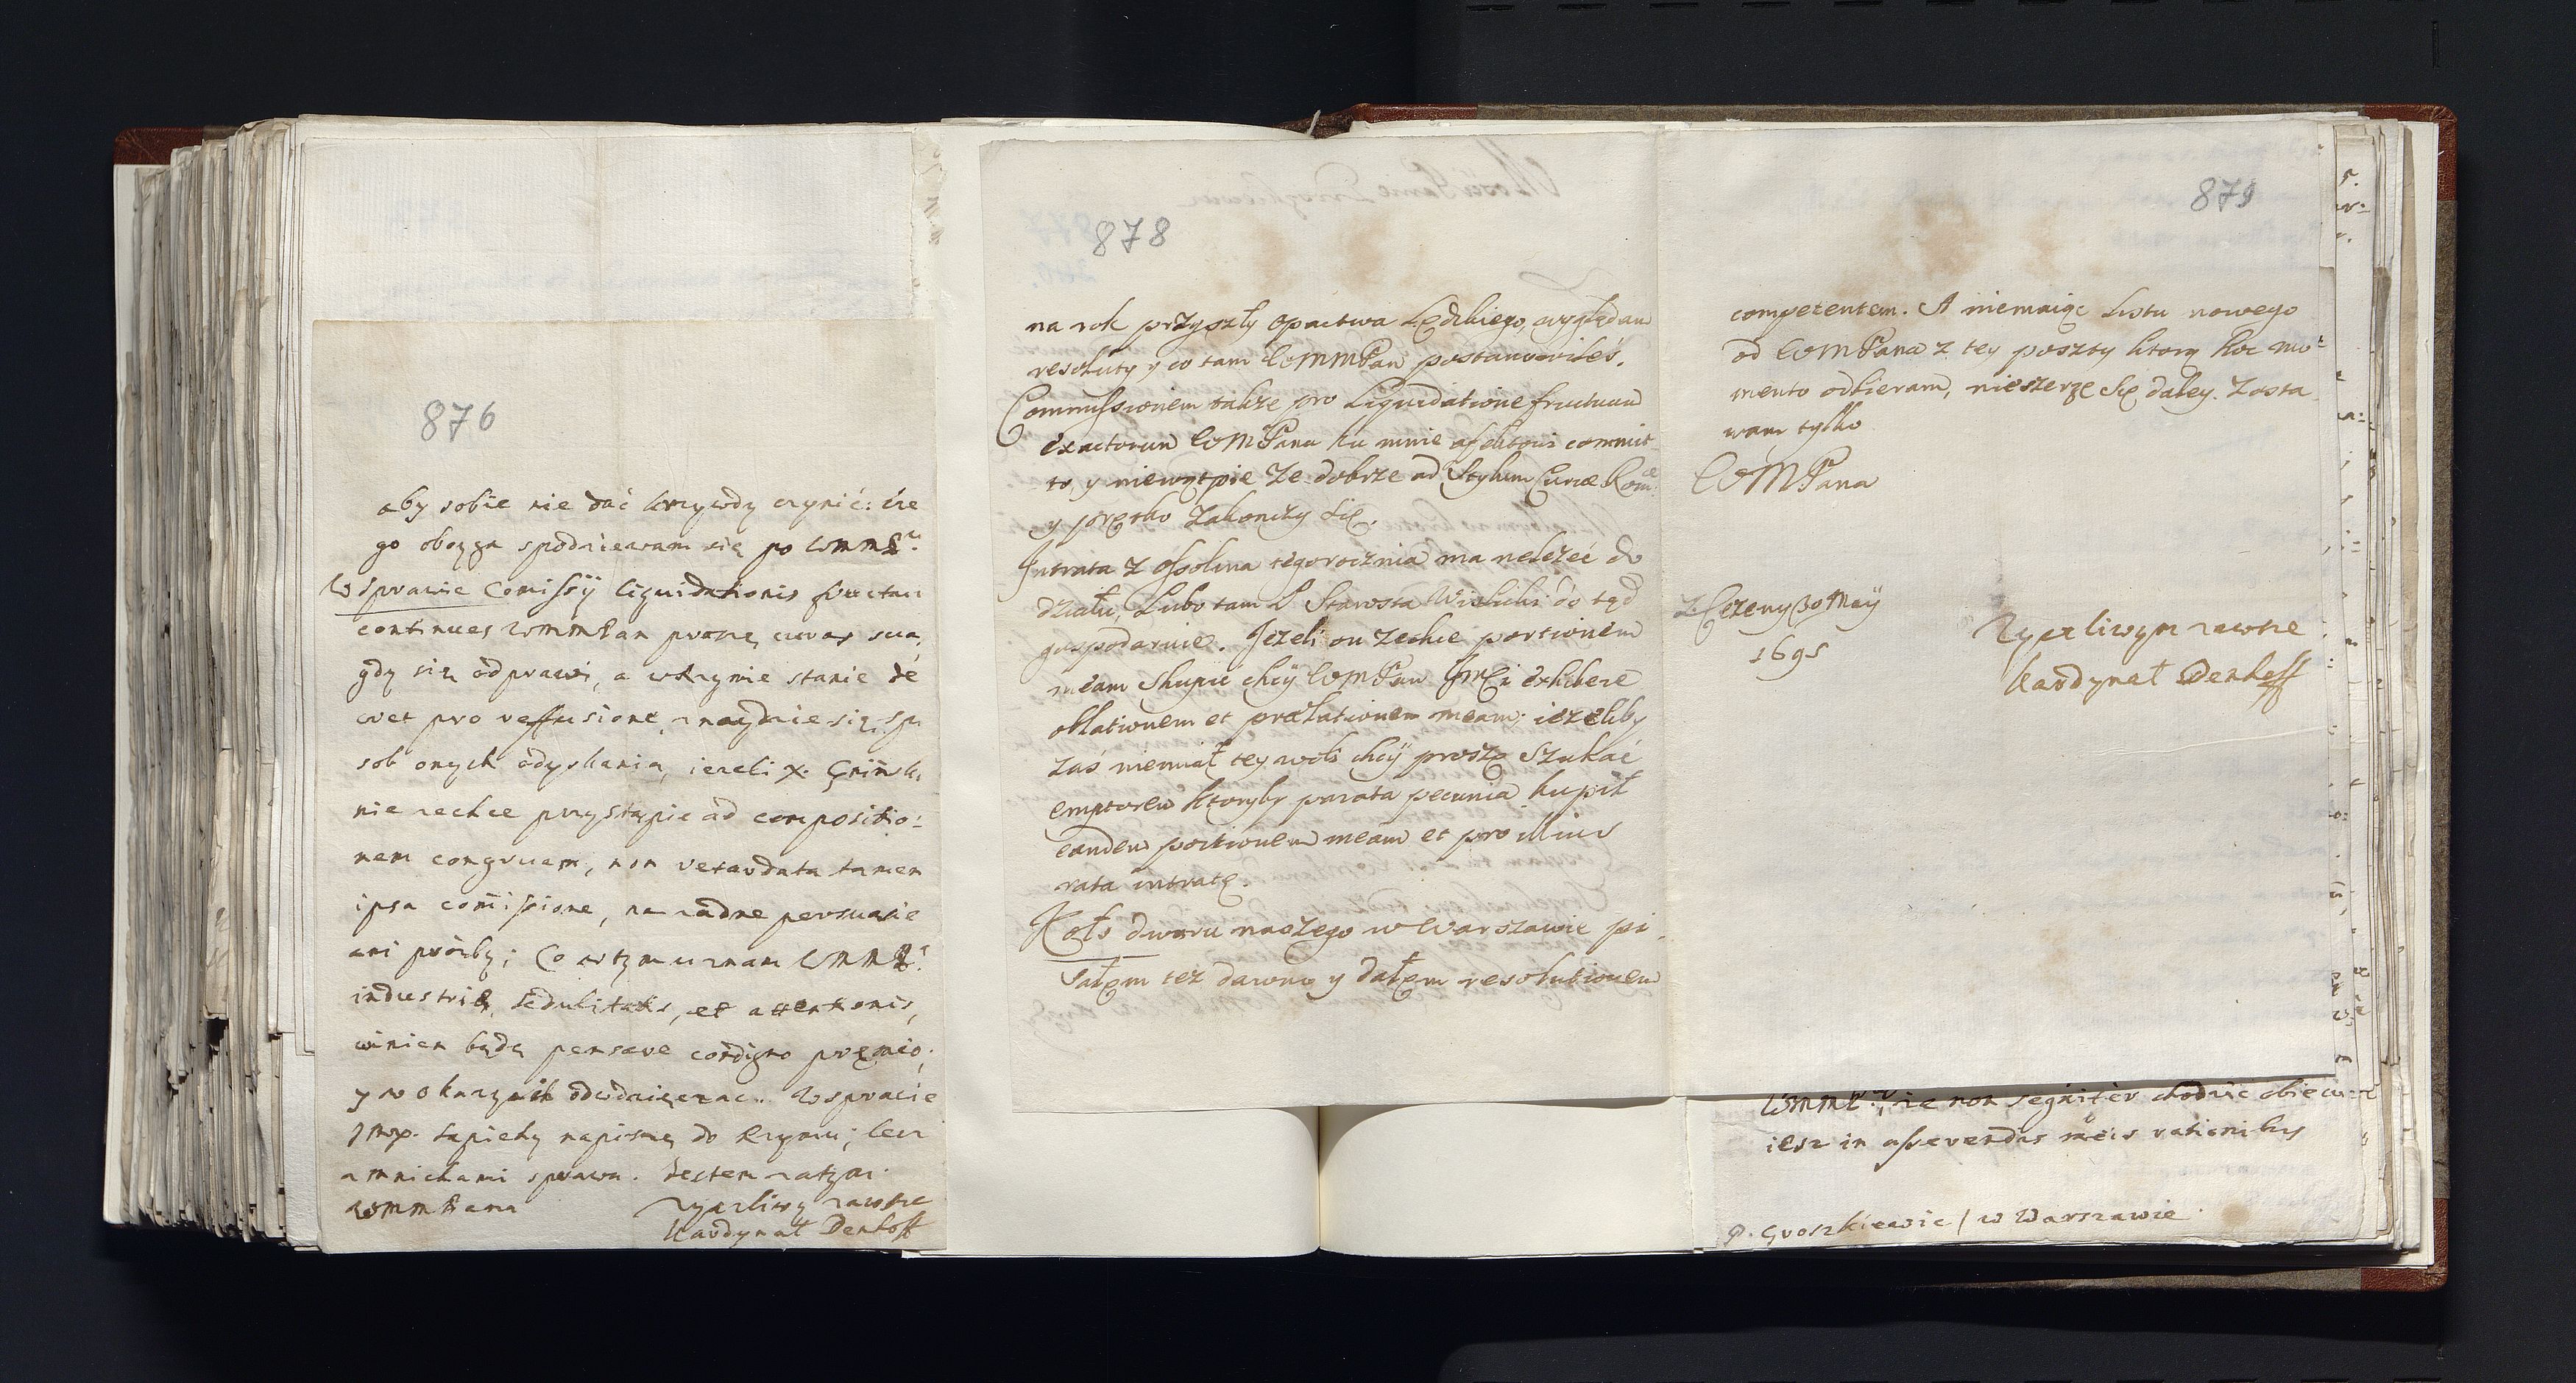 876
aby sobie nie dać krzywdy czynić: cze
go obozga spodziewam się po WMMP:
W sprawie Comissÿ liquidationis fructuu
continues WMMPan proszę curas suas,
gdy się odprawi, a w Rzymie stanie de
cret pro reffusione, znaydzie się spo
sob onych odyskania, iezeli X.
nie zechce przystąpic ad compositio:
nem congruem, non retardata tamen
ipsa comissione, na zadne persuasie
ani prozby; Co w tym uznam WMMP:
industriæ, sedulitatis, et attentionis,
winien będę pensare condigno præmio,
y w okazyach odwdzięczac. W sprawie
Jmp. Sapiehy napiszę do Rzymu; lecz
z mnichami sprawa. Jestem zatym
WMMPana zyczliwy zawsze
Kardynał Denhoff
878
na rok przyszły opactwa Lędzkiego, wyglądam
resoluty y co tam WMMPan postanowiłeś.
Commissionem takze pro Liquidatione fructuum
exactorum WMPana ku mnie affectowi commit
to, y niewątpie ze dobrze ad Stylum Curiæ Rom:
y prętko zakonczy się.
Intrata z Ossolina tegorocznia ma nelezeć do
działu, Lubo tam P. Starosta Wislicki do tąd
gospodaruie. Jezeli on zechce portionem
meam skupic chciÿ WMPan JmCi exhibere
oblationem et prælationem meam; iezeliby
zaś niemiał tey woli chciÿ proszę szukać
emptorem ktoryby parata pecunia kupił
eandem portionem meam et pro illius
rata intratę.
Koło dworu naszego w Warszawie pi
sałem tez dawno y dałem resolutionem
879
competentem. A niemaiąc Listu nowego
od WMPana z tey poszty ktorą hoc mo:
mento odbieram, nieszerzę się daley. Zosta
wam tylko
WMPana
Z Cezeny 30 Maÿ
1695
Zyczliwym zawsze
Kardynał Denhoff
WMMP:, ze non segniter chodzic obiecu
iesz in asserendis meis rationibus
P. Groszkiewic / w Warszawie.